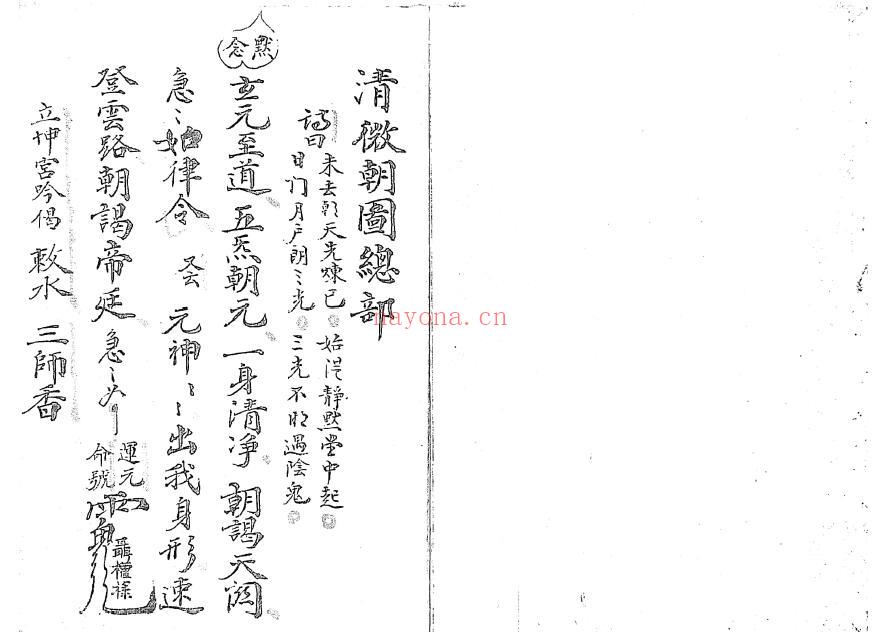 清微朝圖總部
詩曰
未去朝天先煉已 始從靜默堂中起
日门月户朗〻光 三光不明遇陰鬼
默念
玄元至道 五炁朝元 一身清净 朝謁天闕
急〻如律令 又云 元神〻〻出我身形速
登雲路朝謁帝廷 急〻如
運元
命號
立坤宮吟偈 敕水 三師香
nayona.cn